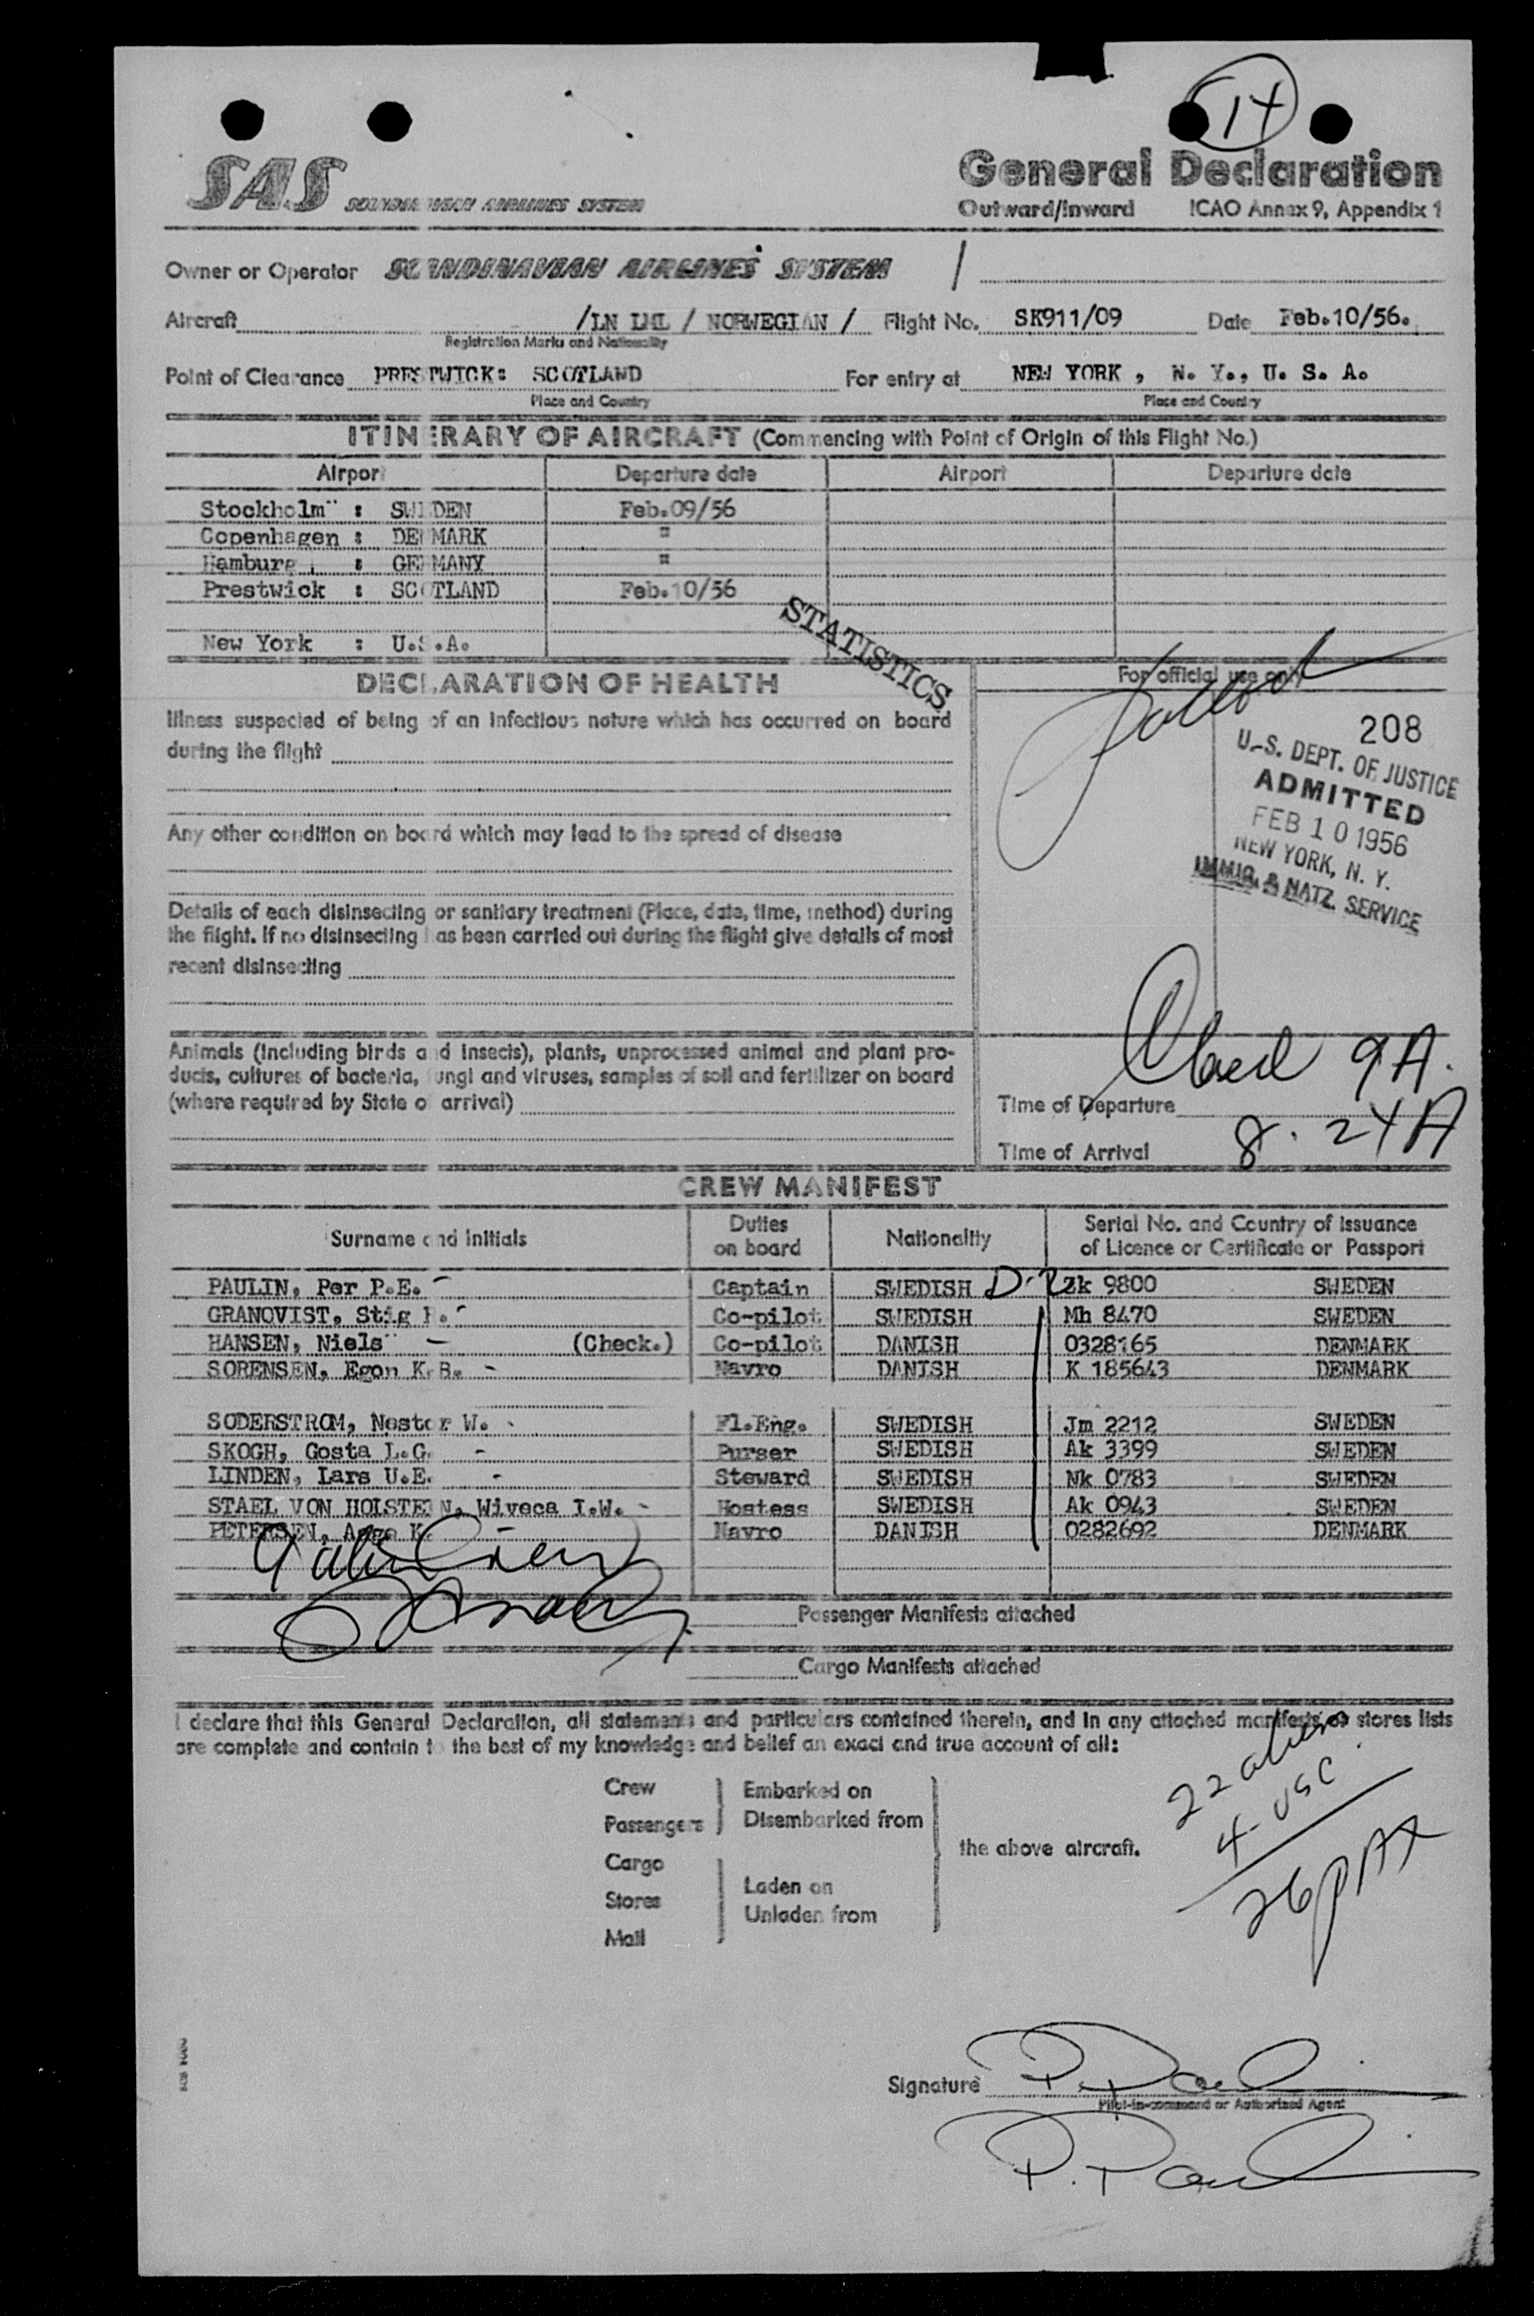 14
SAS SCANDINAVIAN AIRLINES SYSTEM
General Declaration
Outward/Inward ICAO Annex 9, Appendix 1
Owner or Operator SCANDINAVIAN AIRLINES SYSTEM /
Aircraft /LN LML / NORWEGIAN / Flight No. SK911/09 Date Feb.10/56.
Registration Marks and Nationality
Point of Clearance PRESTWICK: SCOTLAND For entry at NEW YORK , N. Y., U. S. A.
Place and Country Place and Country
ITINERARY OF AIRCRAFT (Commencing with Point of Origin of this Flight No.)
Airport Departure date Airport Departure date
Stockholm : SWEDEN Feb.09/56
Copenhagen : DENMARK "
Hamburg : GERMANY "
Prestwick : SCOTLAND Feb.10/56
New York : U.S.A.
STATISTICS
DECLARATION OF HEALTH
For official use only
Illness suspected of being of an infectious nature which has occurred on board
during the flight
208
U.S. DEPT. OF JUSTICE
ADMITTED
FEB 10 1956
NEW YORK, N. Y.
IMMIG. & NATZ. SERVICE
Any other condition on board which may lead to the spread of disease
Details of each disinsecting or sanitary treatment (Place, date, time, method) during
the flight. If no disinsecting has been carried out during the flight give details of most
recent disinsecting
Animals (including birds and insects), plants, unprocessed animal and plant pro-
ducts, cultures of bacteria, fungi and viruses, samples of soil and fertilizer on board
(where required by State of arrival)
9 A.
Time of Departure
Time of Arrival 8.24A
CREW MANIFEST
Surname and initials Duties on board Nationality Serial No. and Country of Issuance of Licence or Certificate or Passport
PAULIN, Per P.E. - Captain SWEDISH Zk 9800 SWEDEN
GRANQVIST, Stig - Co-pilot SWEDISH Mh 8470 SWEDEN
HANSEN, Niels - (Check.) Co-pilot DANISH 0328165 DENMARK
SORENSEN, Egon K.B. - Navro DANISH K 185643 DENMARK
SODERSTROM, Nestor W. - Fl.Eng. SWEDISH Jm 2212 SWEDEN
SKOGH, Gosta L.G. - Purser SWEDISH Ak 3399 SWEDEN
LINDEN, Lars U.E. - Steward SWEDISH Nk 0783 SWEDEN
STAEL VON HOLSTEIN, Wiveca I.W. - Hostess SWEDISH Ak 0943 SWEDEN
PETERSEN, Aage K. - Navro DANISH 0282692 DENMARK
Passenger Manifests attached
Cargo Manifests attached
I declare that this General Declaration, all statements and particulars contained therein, and in any attached manifests or stores lists
are complete and contain to the best of my knowledge and belief an exact and true account of all:
22 aliens
4 - USC
26 PAX
Crew Embarked on
Passengers Disembarked from
the above aircraft.
Cargo
Stores Laden on
Unladen from
Mail
Signature P. Paulin
Pilot-in-command or Authorized Agent
P. Paulin